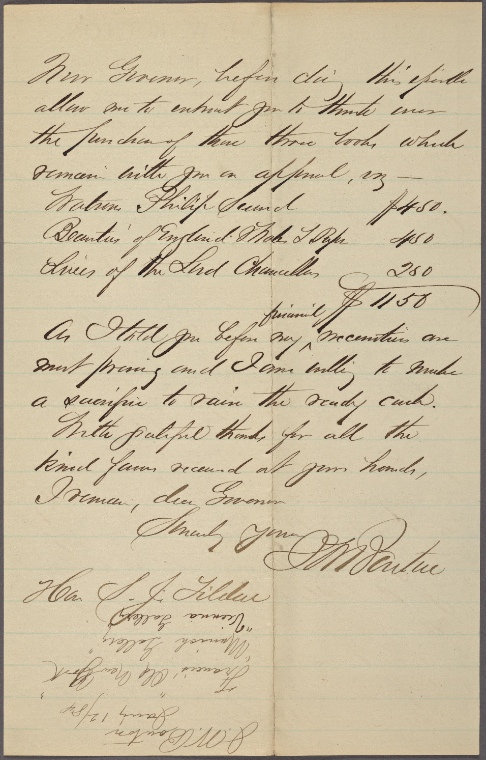 Now Governor, before closing this epistle
allow me to entreat you to think over
the purchase of these three books which
remain with you on approval, viz —
Watson's Philip Second $450.
Beauties of England & Wales L Paper 450
Lives of the Lord Chancellors 250
$1150
As I told you before my financial necessities are
most pressing and I am willing to make
a sacrifice to raise the ready cash.
With grateful thanks for all the
kind favors received at your hands,
I remain, dear Governor
Sincerely yours
J W Bouton
Hon S. J. Tilden
J. W. Bouton
Jany 12/84
"Francis' Old New York"
"Munich Gallery"
"Vienna Gallery"